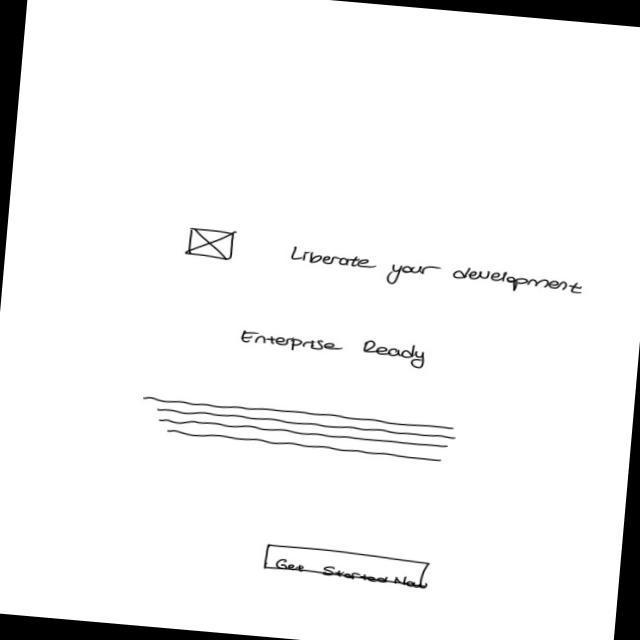 Liberate your development
Enterprise Ready
Get Started Now